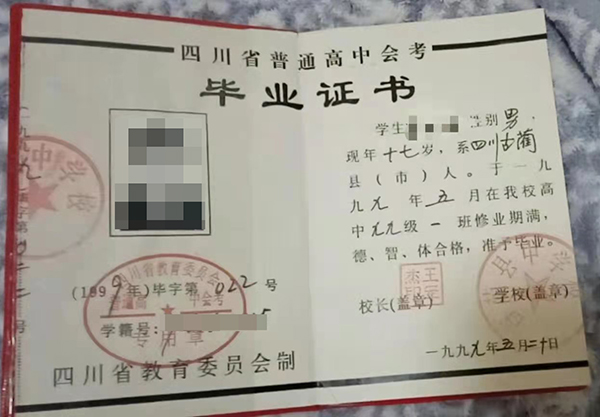 四川省普通高中会考
毕业证书
学生 性别男,
现年十七岁,系四川古蔺
县(市)人。于一九
九九年五月在我校高
中九九级一班修业期满,
德、智、体合格,准予毕业。
校长(盖章) 学校(盖章)
一九九九年五月二十日
(1999年)毕字第022号
学籍号:
四川省教育委员会制
四川省教育委员会
普通高 中会考
专用章